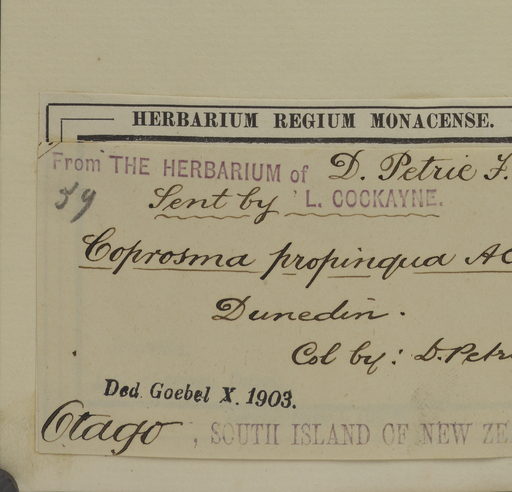 HERBARIUM REGIUM MONACENSE.
From THE HERBARIUM of D. Petrie F.
59
Sent by L. COCKAYNE.
Coprosma propinqua AC
Dunedin.
Col by: D. Petr
Ded. Goebel X. 1903.
Otago, SOUTH ISLAND OF NEW ZE